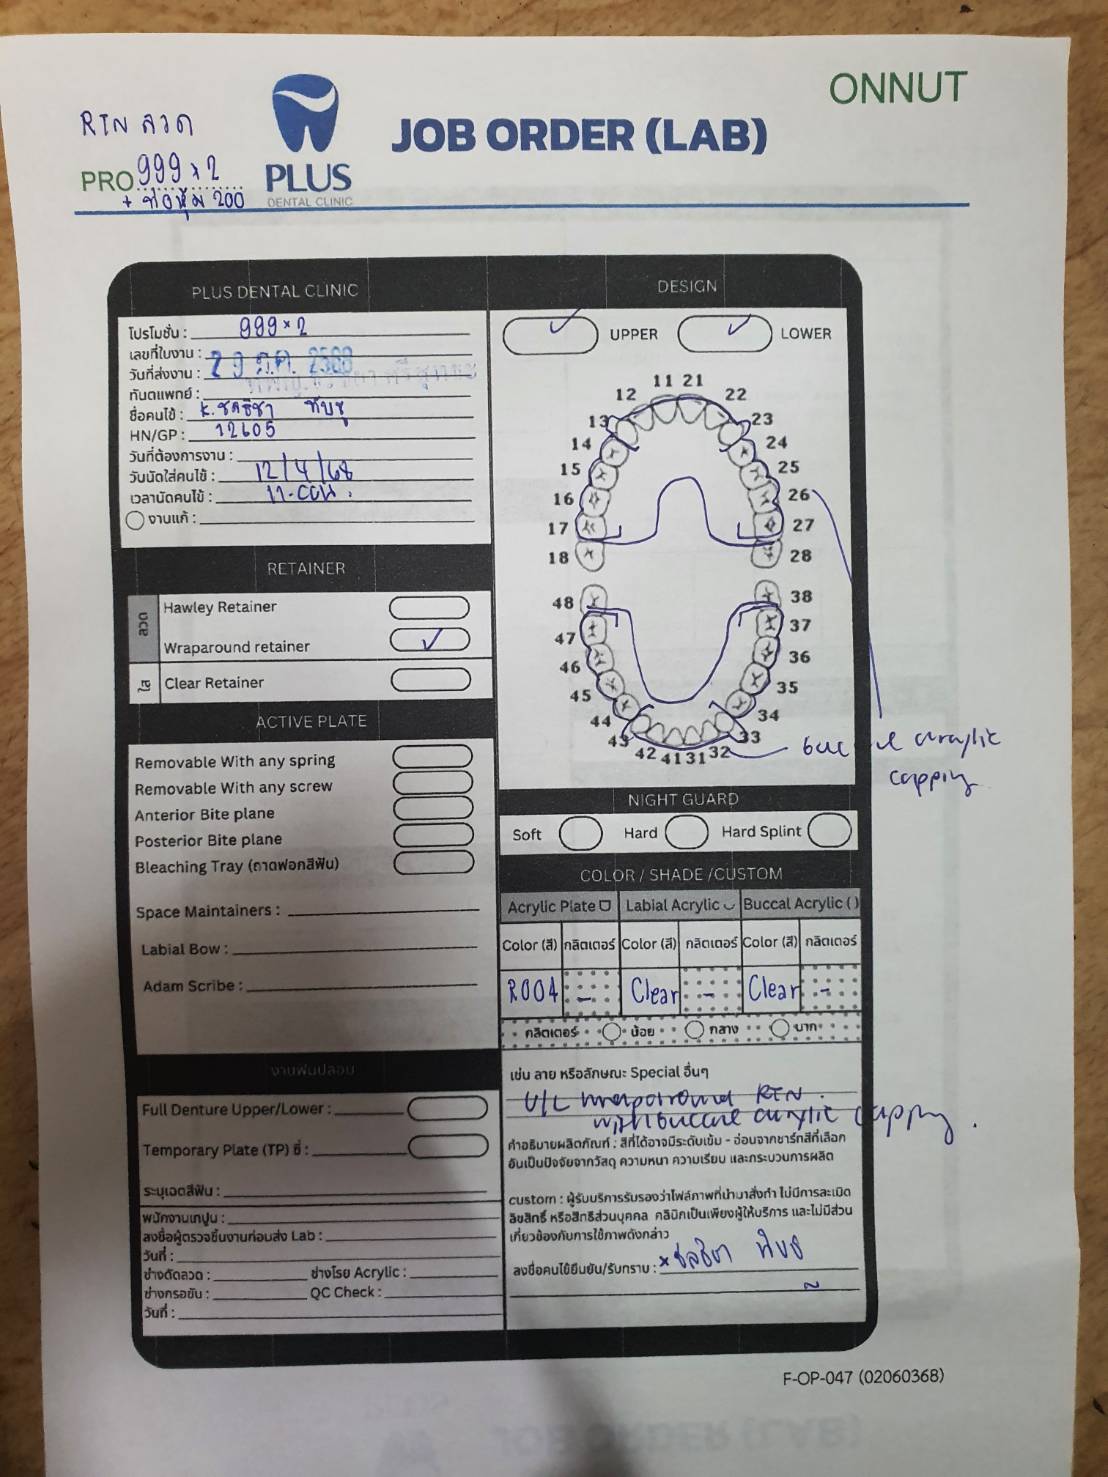 ONNUT
RTN ลวด
PRO 999 x 2
+ ท่อหุ้ม 200
PLUS
DENTAL CLINIC
JOB ORDER (LAB)
PLUS DENTAL CLINIC
โปรโมชั่น : 999 x 2
เลขที่ใบงาน :
วันที่ส่งงาน : 29 ก.ค. 2568
ทันตแพทย์ :
ชื่อคนไข้ : K.
HN/GP : 12605
วันที่ต้องการงาน :
วันนัดใส่คนไข้ : 12/4/68
เวลานัดคนไข้ :
งานแก้ :
RETAINER
ลวด
Hawley Retainer
Wraparound retainer ✓
ใส
Clear Retainer
ACTIVE PLATE
Removable With any spring
Removable With any screw
Anterior Bite plane
Posterior Bite plane
Bleaching Tray (ถาดฟอกสีฟัน)
Space Maintainers :
Labial Bow :
Adam Scribe :
งานฟันปลอม
Full Denture Upper/Lower :
Temporary Plate (TP) ซี่ :
ระบุเฉดสีฟัน :
พนักงานเทปูน :
ลงชื่อผู้ตรวจชิ้นงานก่อนส่ง Lab :
วันที่ :
ช่างดัดลวด : ช่างโรย Acrylic :
ช่างกรอขัด : QC Check :
วันที่ :
DESIGN
✓ UPPER ✓ LOWER
11 21
12 22
13 23
14 24
15 25
16 26
17 27
18 28
48 38
47 37
46 36
45 35
44 34
43 33
42 41 31 32
buccal acrylic
capping
NIGHT GUARD
Soft Hard Hard Splint
COLOR / SHADE /CUSTOM
Acrylic Plate Labial Acrylic Buccal Acrylic ( )
Color (สี) กลิตเตอร์ Color (สี) กลิตเตอร์ Color (สี) กลิตเตอร์
R004 - Clear - Clear -
กลิตเตอร์ น้อย กลาง มาก
เช่น ลาย หรือลักษณะ Special อื่นๆ
U/L wraparound RTN.
with buccal acrylic capping.
คำอธิบายผลิตภัณฑ์ : สีที่ได้อาจมีระดับเข้ม - อ่อนจากชาร์ทสีที่เลือก
อันเป็นปัจจัยจากวัสดุ ความหนา ความเรียบ และกระบวนการผลิต
custom : ผู้รับบริการรับรองว่าไฟล์ภาพที่นำมาสั่งทำ ไม่มีการละเมิด
ลิขสิทธิ์ หรือสิทธิส่วนบุคคล คลินิกเป็นเพียงผู้ให้บริการ และไม่มีส่วน
เกี่ยวข้องกับการใช้ภาพดังกล่าว
ลงชื่อคนไข้ยืนยัน/รับทราบ : x
F-OP-047 (02060368)